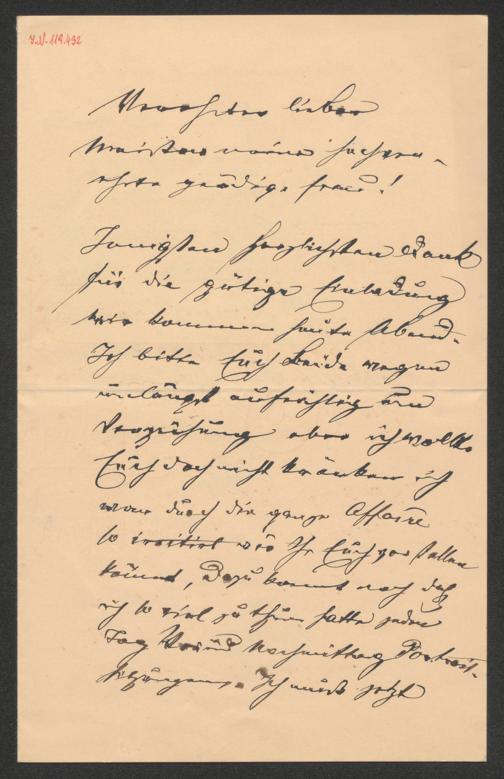 I.N. 119.492
Verehrter lieber
Meister meine hochver-
ehrte gnädige Frau!
Innigsten herzlichsten Dank
für die gütige Einladung
wir kommen heute Abend.
Ich bitte Euch Beide wegen
unlängst aufrichtig um
Verzeihung aber ich wollte
Euch doch nicht kränken ich
war durch die ganze Affaire
so irritirt wie Ihr Euch vorstellen
könnt, dazu kommt noch daß
ich so viel zu thun hatte jeden
Tag Vor und Nachmittag Portrait-
sitzungen. Ich muß jetzt